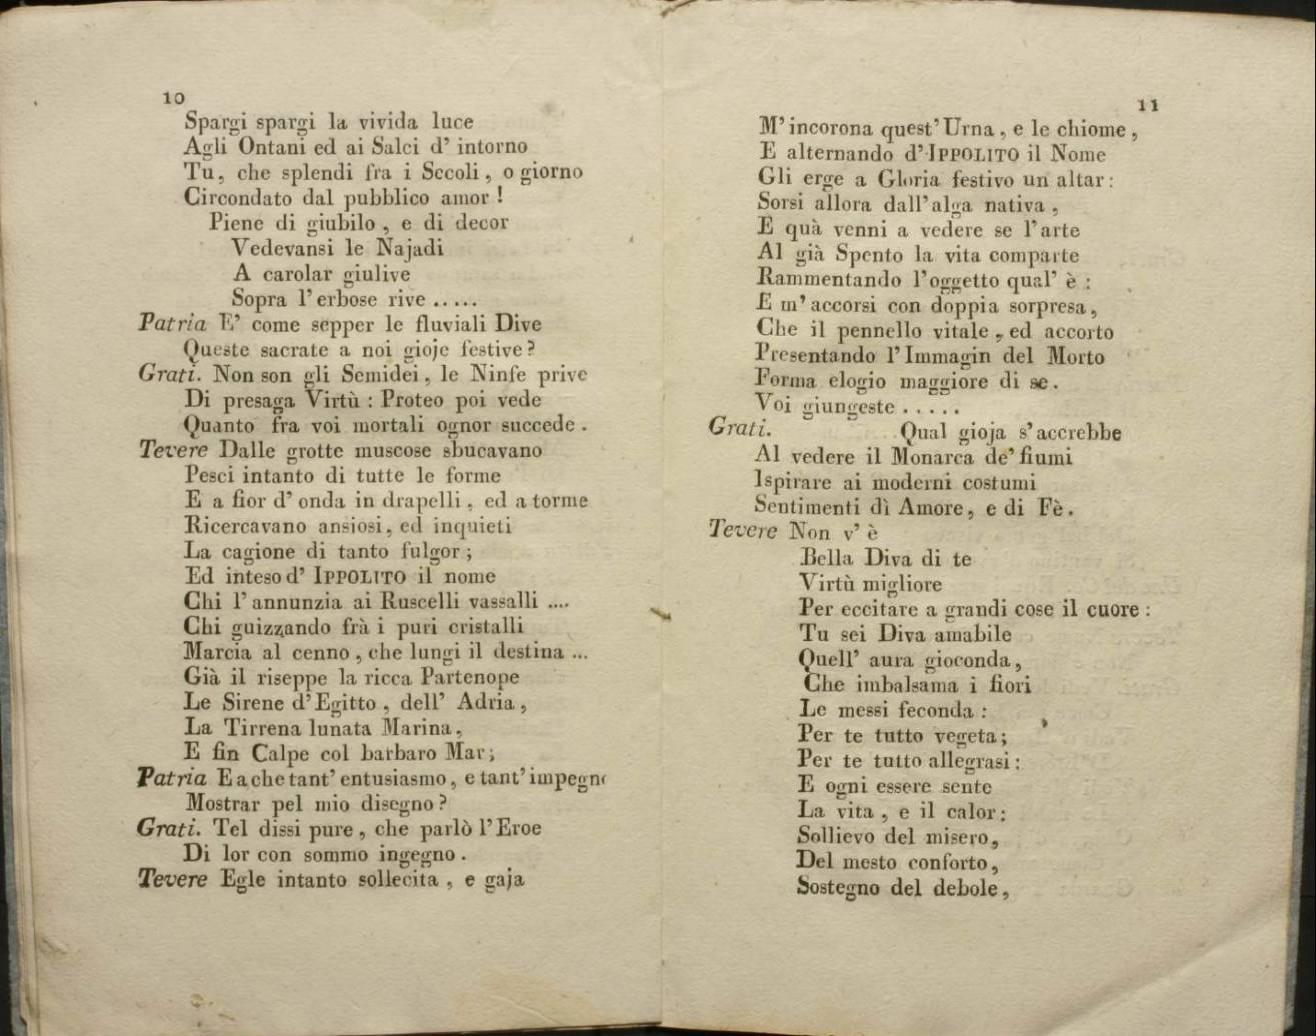 10
Spargi spargi la vivida luce
Agli Ontani ed ai Salci d' intorno
Tu, che splendi fra i Secoli, o giorno
Circondato dal pubblico amor !
Piene di giubilo, e di decor
Vedevansi le Najadi
A carolar giulive
Sopra l' erbose rive .....
Patria E' come sepper le fluviali Dive
Queste sacrate a noi gioje festive?
Grati. Non son gli Semidei, le Ninfe prive
Di presaga Virtù : Proteo poi vede
Quanto fra voi mortali ognor succede .
Tevere Dalle grotte muscose sbucavano
Pesci intanto di tutte le forme
E a fior d' onda in drapelli, ed a torme
Ricercavano ansiosi, ed inquieti
La cagione di tanto fulgor ;
Ed inteso d' IPPOLITO il nome
Chi l' annunzia ai Ruscelli vassalli ....
Chi guizzando frà i puri cristalli
Marcia al cenno, che lungi il destina ...
Già il riseppe la ricca Partenope
Le Sirene d' Egitto, dell' Adria,
La Tirrena lunata Marina,
E fin Calpe col barbaro Mar;
Patria E a che tant' entusiasmo, e tant' impegno
Mostrar pel mio disegno?
Grati. Tel dissi pure, che parlò l' Eroe
Di lor con sommo ingegno .
Tevere Egle intanto sollecita, e gaja
11
M' incorona quest' Urna, e le chiome,
E alternando d' IPPOLITO il Nome
Gli erge a Gloria festivo un altar:
Sorsi allora dall' alga nativa,
E quà venni a vedere se l' arte
Al già Spento la vita comparte
Rammentando l' oggetto qual' è :
E m' accorsi con doppia sorpresa,
Che il pennello vitale, ed accorto
Presentando l' Immagin del Morto
Forma elogio maggiore di se.
Voi giungeste .....
Grati. Qual gioja s' accrebbe
Al vedere il Monarca de' fiumi
Ispirare ai moderni costumi
Sentimenti dì Amore, e di Fè.
Tevere Non v' è
Bella Diva di te
Virtù migliore
Per eccitare a grandi cose il cuore :
Tu sei Diva amabile
Quell' aura gioconda,
Che imbalsama i fiori
Le messi feconda :
Per te tutto vegeta;
Per te tutto allegrasi :
E ogni essere sente
La vita, e il calor :
Sollievo del misero,
Del mesto conforto,
Sostegno del debole,